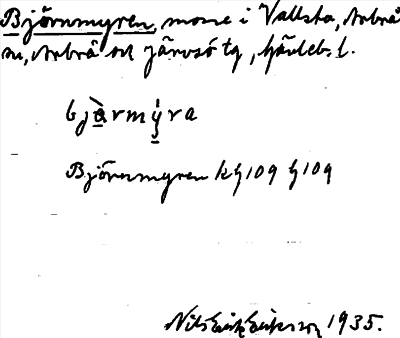 Björnmyren, mosse i Vallsta, Arbrå
sn, Arbrå och Järvsö tg, Gävleb. l.
bjärmýra
Björnmyren kg 109 G 109
Nils Erik Eriksson 1935.